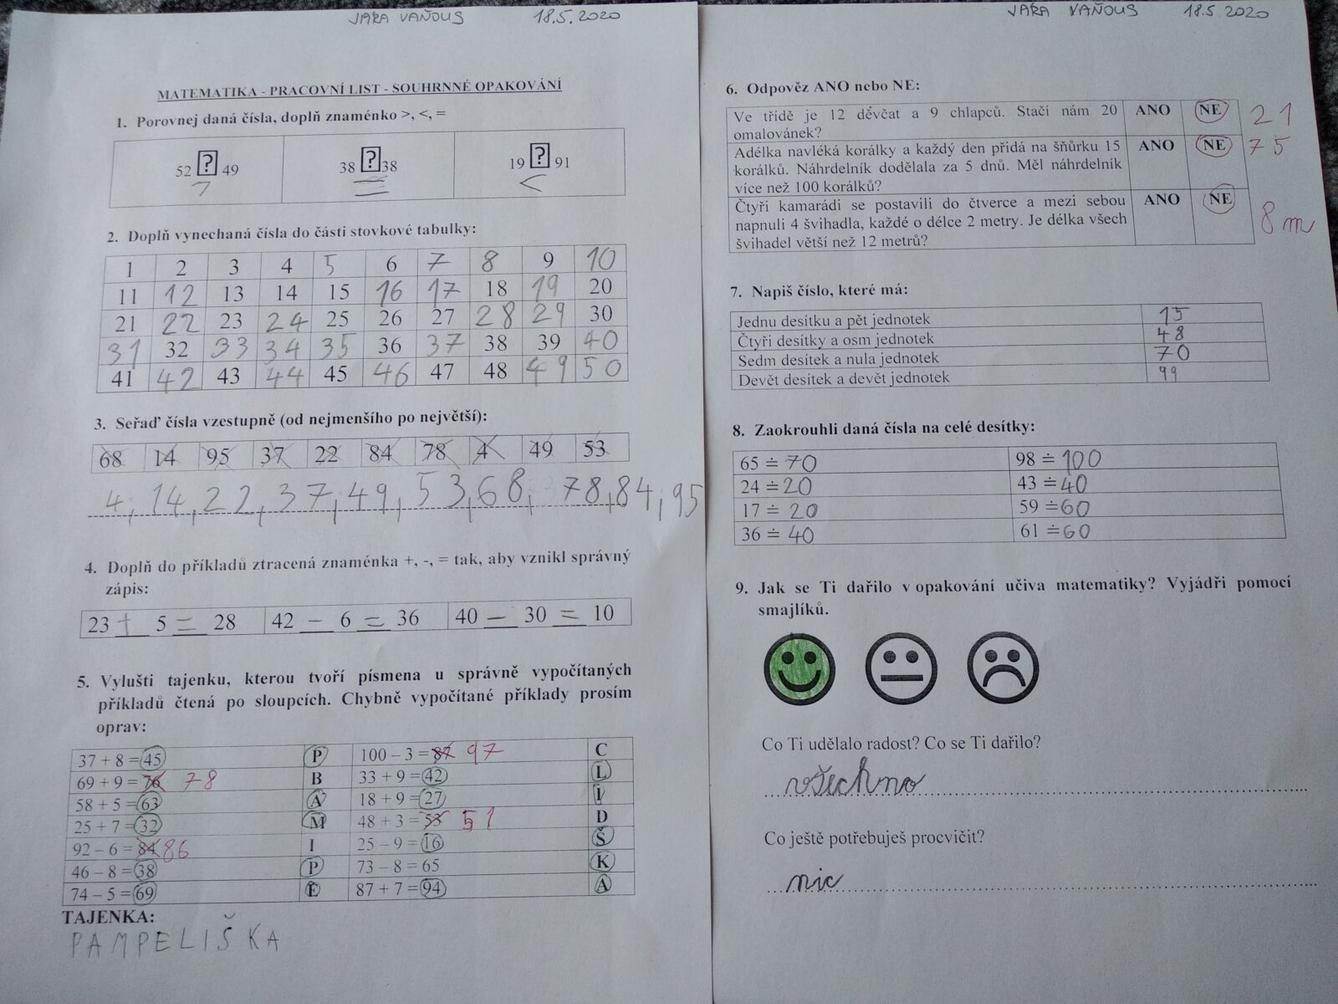 JARA VAŇOUS 18.5.2020
MATEMATIKA - PRACOVNÍ LIST - SOUHRNNÉ OPAKOVÁNÍ
1. Porovnej daná čísla, doplň znaménko >, <, =
52 ? 49 38 ? 38 19 ? 91
> = <
2. Doplň vynechaná čísla do části stovkové tabulky:
1 2 3 4 5 6 7 8 9 10
11 12 13 14 15 16 17 18 19 20
21 22 23 24 25 26 27 28 29 30
31 32 33 34 35 36 37 38 39 40
41 42 43 44 45 46 47 48 49 50
3. Seřaď čísla vzestupně (od nejmenšího po největší):
68 14 95 37 22 84 78 4 49 53
4, 14, 22, 37, 49, 53, 68, 78, 84, 95
4. Doplň do příkladů ztracená znaménka +, -, = tak, aby vznikl správný
zápis:
23 + 5 = 28 42 - 6 = 36 40 - 30 = 10
5. Vylušti tajenku, kterou tvoří písmena u správně vypočítaných
příkladů čtená po sloupcích. Chybně vypočítané příklady prosím
oprav:
37 + 8 = 45 P 100 – 3 = 87 97 C
69 + 9 = 76 78 B 33 + 9 = 42 L
58 + 5 = 63 A 18 + 9 = 27 I
25 + 7 = 32 M 48 + 3 = 53 51 D
92 – 6 = 84 86 I 25 – 9 = 16 Š
46 – 8 = 38 P 73 – 8 = 65 K
74 – 5 = 69 E 87 + 7 = 94 A
TAJENKA:
PAMPELIŠKA
JARA VAŇOUS 18.5.2020
6. Odpověz ANO nebo NE:
Ve třídě je 12 děvčat a 9 chlapců. Stačí nám 20 ANO NE 21
omalovánek?
Adélka navléká korálky a každý den přidá na šňůrku 15 ANO NE 75
korálků. Náhrdelník dodělala za 5 dnů. Měl náhrdelník
více než 100 korálků?
Čtyři kamarádi se postavili do čtverce a mezi sebou ANO NE 8 m
napnuli 4 švihadla, každé o délce 2 metry. Je délka všech
švihadel větší než 12 metrů?
7. Napiš číslo, které má:
Jednu desítku a pět jednotek 15
Čtyři desítky a osm jednotek 48
Sedm desítek a nula jednotek 70
Devět desítek a devět jednotek 99
8. Zaokrouhli daná čísla na celé desítky:
65 ≐ 70 98 ≐ 100
24 ≐ 20 43 ≐ 40
17 ≐ 20 59 ≐ 60
36 ≐ 40 61 ≐ 60
9. Jak se Ti dařilo v opakování učiva matematiky? Vyjádři pomocí
smajlíků.
Co Ti udělalo radost? Co se Ti dařilo?
všechno
Co ještě potřebuješ procvičit?
nic